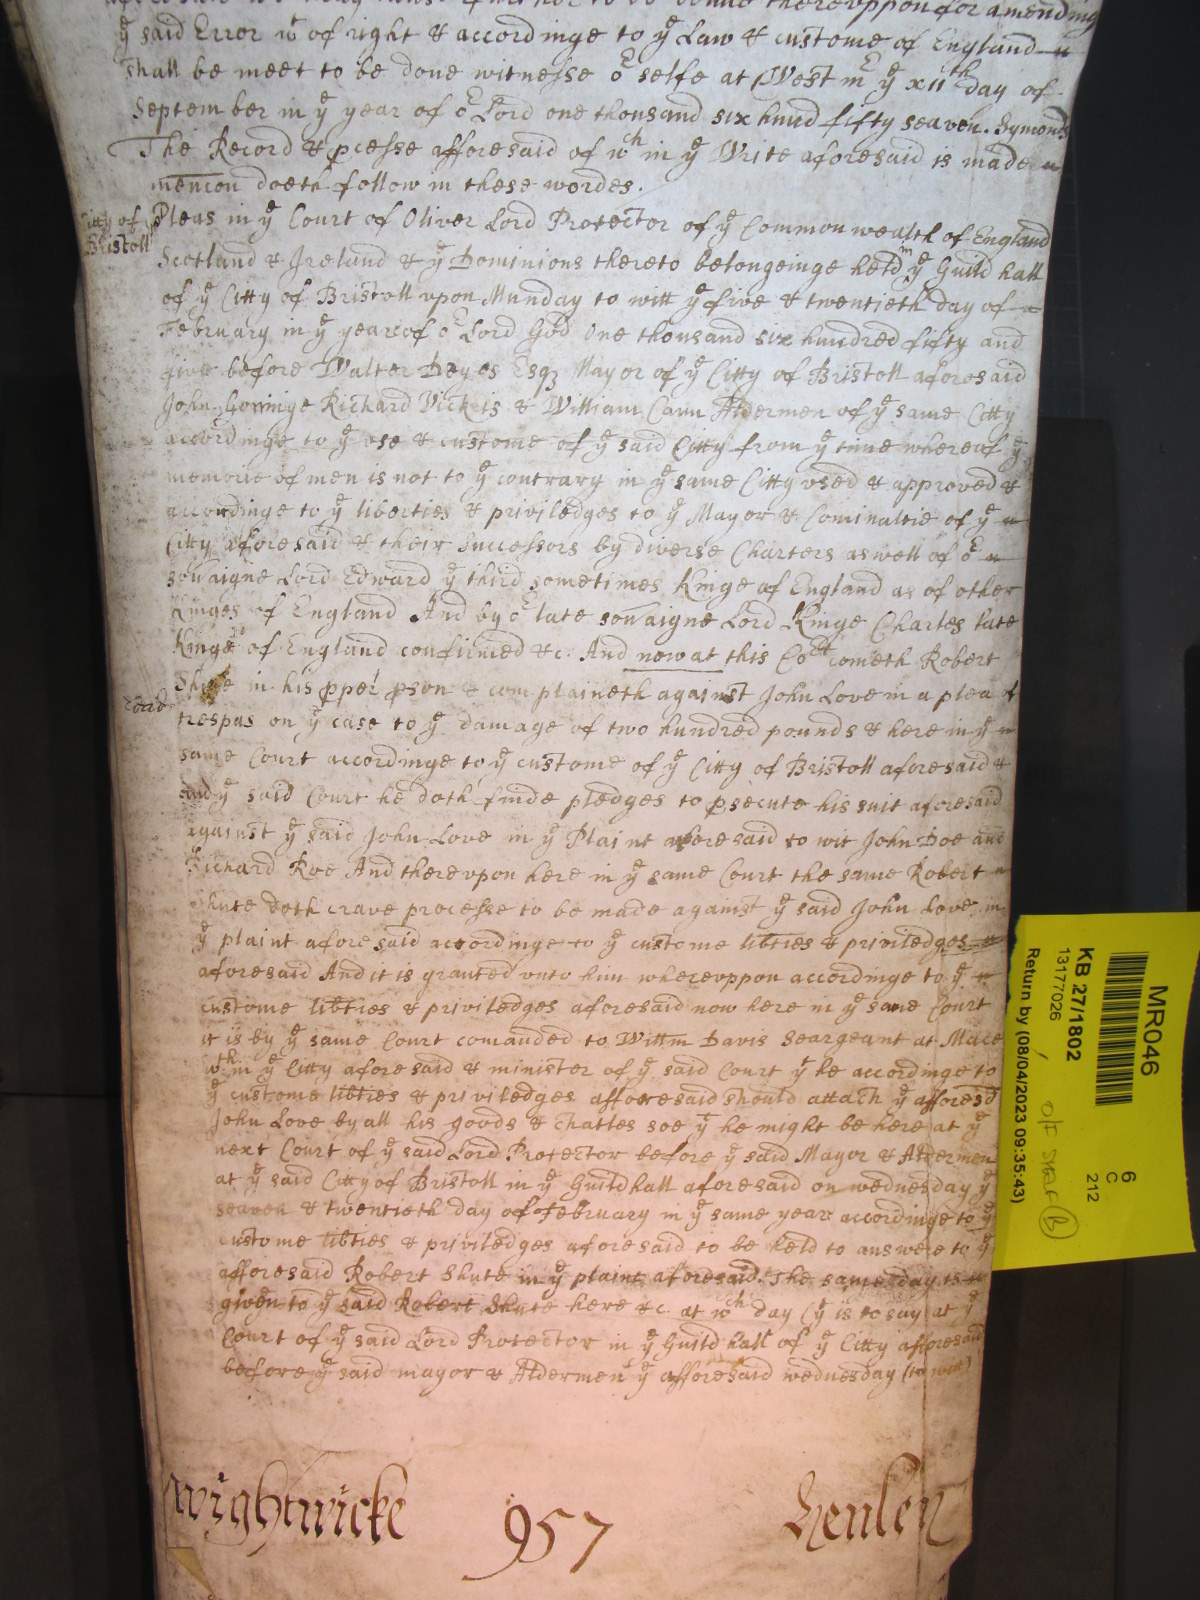 thereuppon for amending
yͤ said Error wͨ of right & accordinge to yͤ Law & custome of England
shall be meet to be done witnesse oͬ selfe at Westmͬ yͤ xiiᵗʰ day of
September in yͤ year of oͬ Lord one thousand six hund fifty seaven. Symonds
The Record & pcesse afforesaid of wᶜʰ in yͤ Write aforesaid is made
mencon doeth follow in these wordes.
Citty of Bristoll
Pleas in yͤ Court of Oliver Lord Protector of yͤ Common wealth of England
Scotland & Ireland & yͤ Dominions thereto belongeinge held in yͤ Guild hall
of yͤ Citty of Bristoll upon Munday to witt yͤ five & twentieth day of
February in yͤ year of oͬ Lord God One thousand six hundred fifty and
five before Walter Deyos Esqꝫ Mayor of yͤ Citty of Bristoll aforesaid
John Gonninge Richard Vickris & William Cann Aldermen of yͤ same Citty
accordinge to yͤ use & custome of yͤ said Citty from yͤ time whereof yͤ
memorie of men is not to yͤ contrary in yͤ same Citty used & approved &
accordinge to yͤ liberties & priviledges to yͤ Mayor & Cominaltie of yͤ
Citty aforesaid & their Successors by diverse Charters aswell of oͬ
sovaigne Lord Edward yͤ third sometimes Kinge of England as of other
Kinges of England And by oͬ late sovaigne Lord Kinge Charles late
Kinge of England confirmed &c. And now at this Coᵗ cometh Robert
Shute in his pper pson & complaineth against John Love in a plea of
trespas on yͤ case to yͤ damage of two hundred pounds & here in yͤ
same Court accordinge to yͤ custome of yͤ Citty of Bristoll aforesaid &
and yͤ said Court he doth finde pledges to psecute his suit aforesaid
against yͤ said John Love in yͤ Plaint aforesaid to wit John Doe and
Richard Roe And thereupon here in yͤ same Court the same Robert
Shute doth crave processe to be made against yͤ said John Love in
yͤ plaint aforesaid accordinge to yͤ custome libties & priviledges
aforesaid And it is granted unto him whereuppon accordinge to yͤ
custome libties & priviledges aforesaid now here in yͤ same Court
it is by yͤ same Court comanded to Willm Davis Seargeant at Mace
wᵗʰin yͤ Citty aforesaid & minister of yͤ said Court yͭ he accordinge to
yͤ custome libties & priviledges afforesaid should attach yͤ afforesd
John Love by all his goods & chattles soe yͭ he might be here at yͤ
next Court of yͤ said Lord Protector before yͤ said Mayor & Aldermen
at yͤ said Citty of Bristoll in yͤ Guildhall aforesaid on wednesday yͤ
seaven & twentieth day of February in yͤ same year accordinge to yͤ
custome libties & priviledges aforesaid to be held to answere to yͤ
afforesaid Robert Shute in yͤ plaint aforesaid. The same day is
given to yͤ said Robert Shute here &c. at wᶜʰ day (yͭ is to say) at yͤ
Court of yͤ said Lord Protector in yͤ Guild hall of yͤ Citty afforesaid
before yͤ said mayor & Aldermen yͤ afforesaid wednesday (to witt)
Wightwicke 957 Henley
MR046
6
C
212
KB 27/1802
13177026
Return by (08/04/2023 09:35:43)